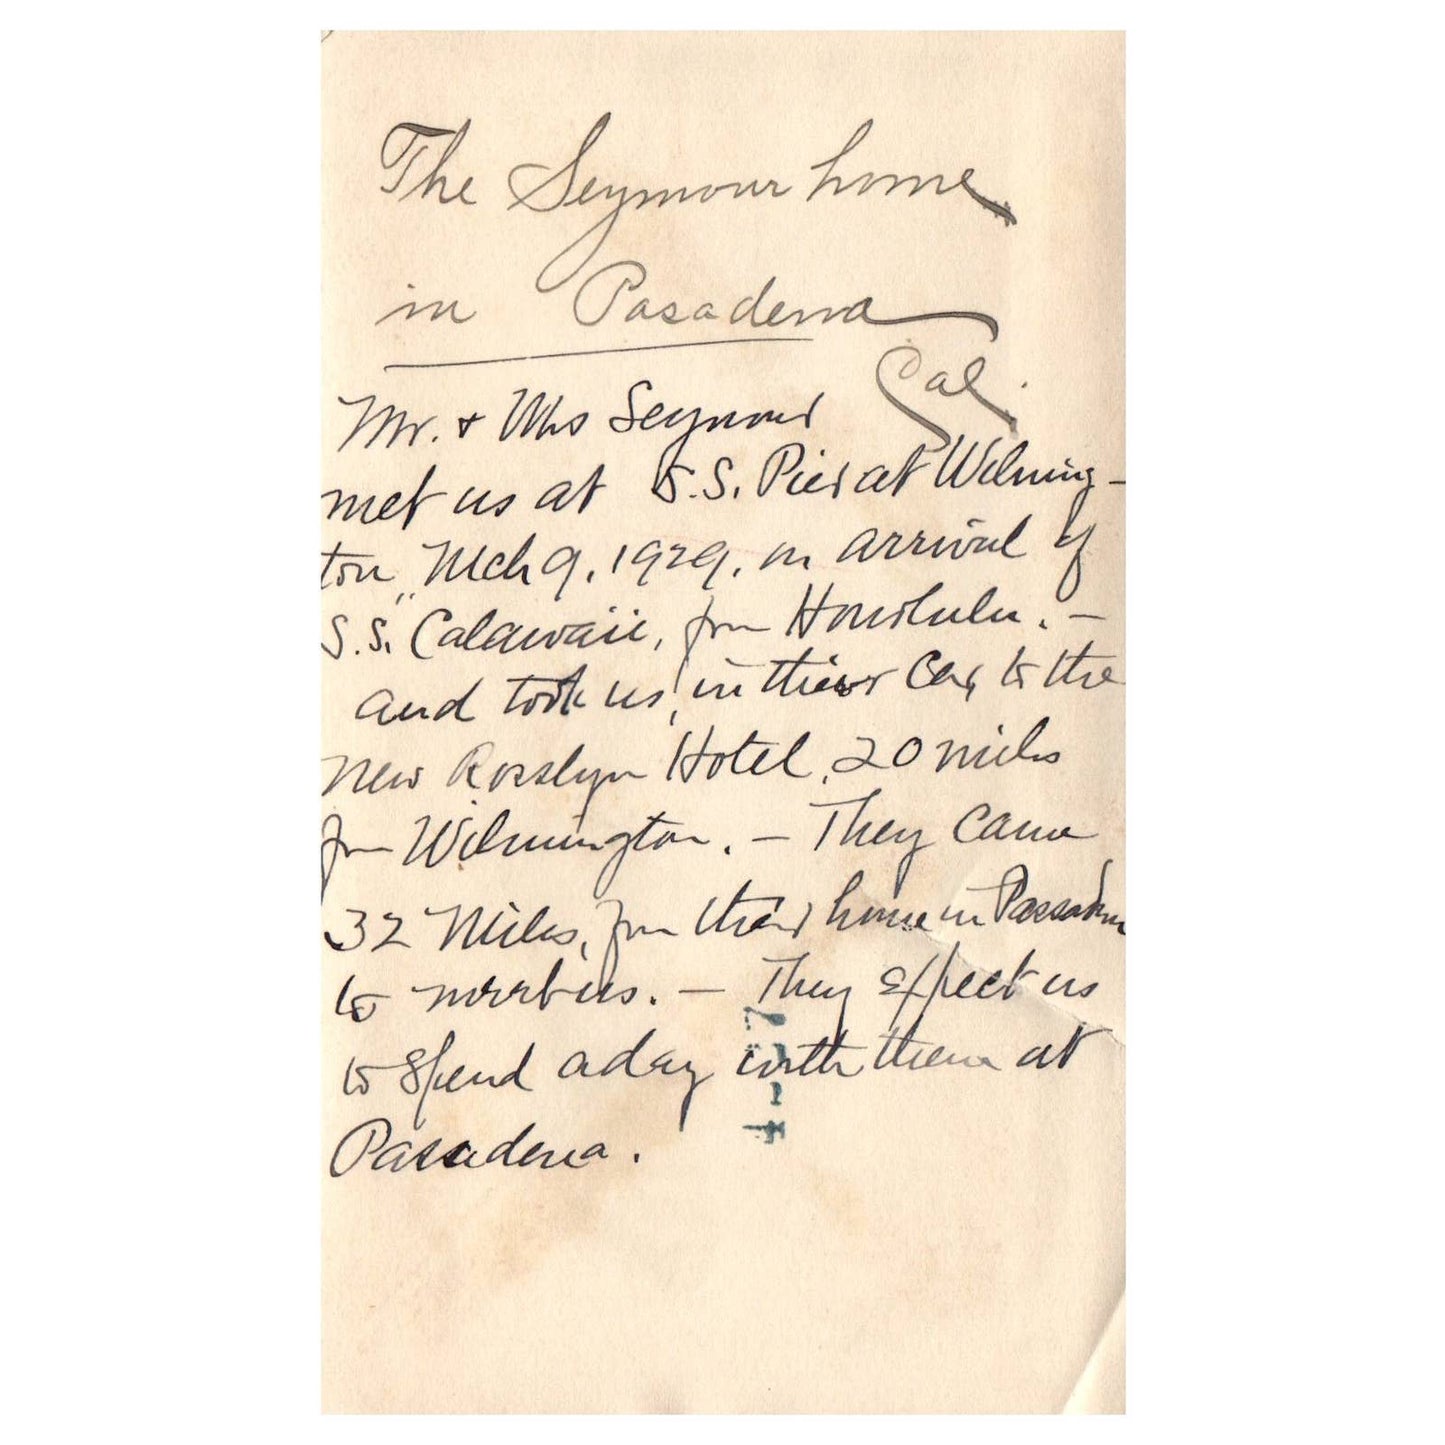 The Seymour home
in Pasadena
Cal.
Mr. + Mrs Seymour
met us at S.S. Pier at Wilming-
ton, Mch 9, 1929, on arrival of
S.S. "Calawaii, from Honolulu. -
and took us, in their car, to the
New Rosslyn Hotel, 20 miles
from Wilmington. - They came
32 Miles, from their home in Pasadena
to meet us. - They expect us
to spend a day with them at
Pasadena.